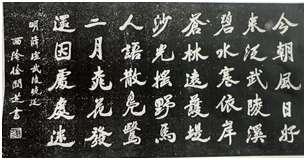 今朝風日好
來泛武陵溪
碧水寒依岸
蒼林遠護堤
沙光搖野馬
人語散鳧鷖
二月桃花發
還因處處迷
明薛瑄武陵曉泛
西泠徐書